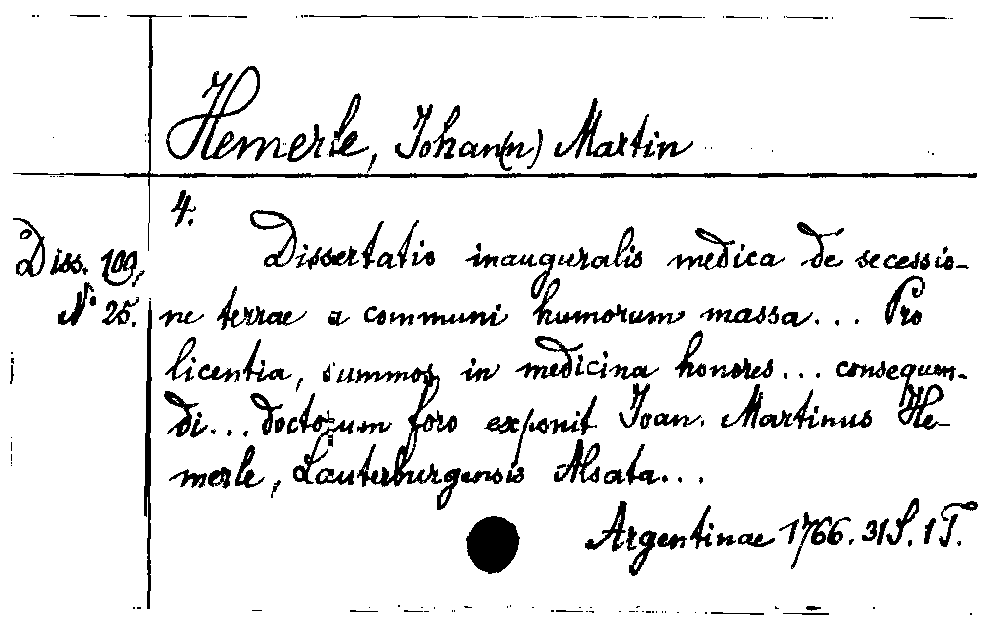 Hemerle, Johan(n) Martin
4.
Diss. 109,
N° 25.
Dissertatio inauguralis medica de secessio-
ne terrae a communi humorum massa... Pro
licentia, summos in medicina honores... consequen-
di... doctorum foro exponit Joan. Martinus He-
merle, Lauterburgensis Alsata...
Argentinae 1766. 31 S. 1 T.